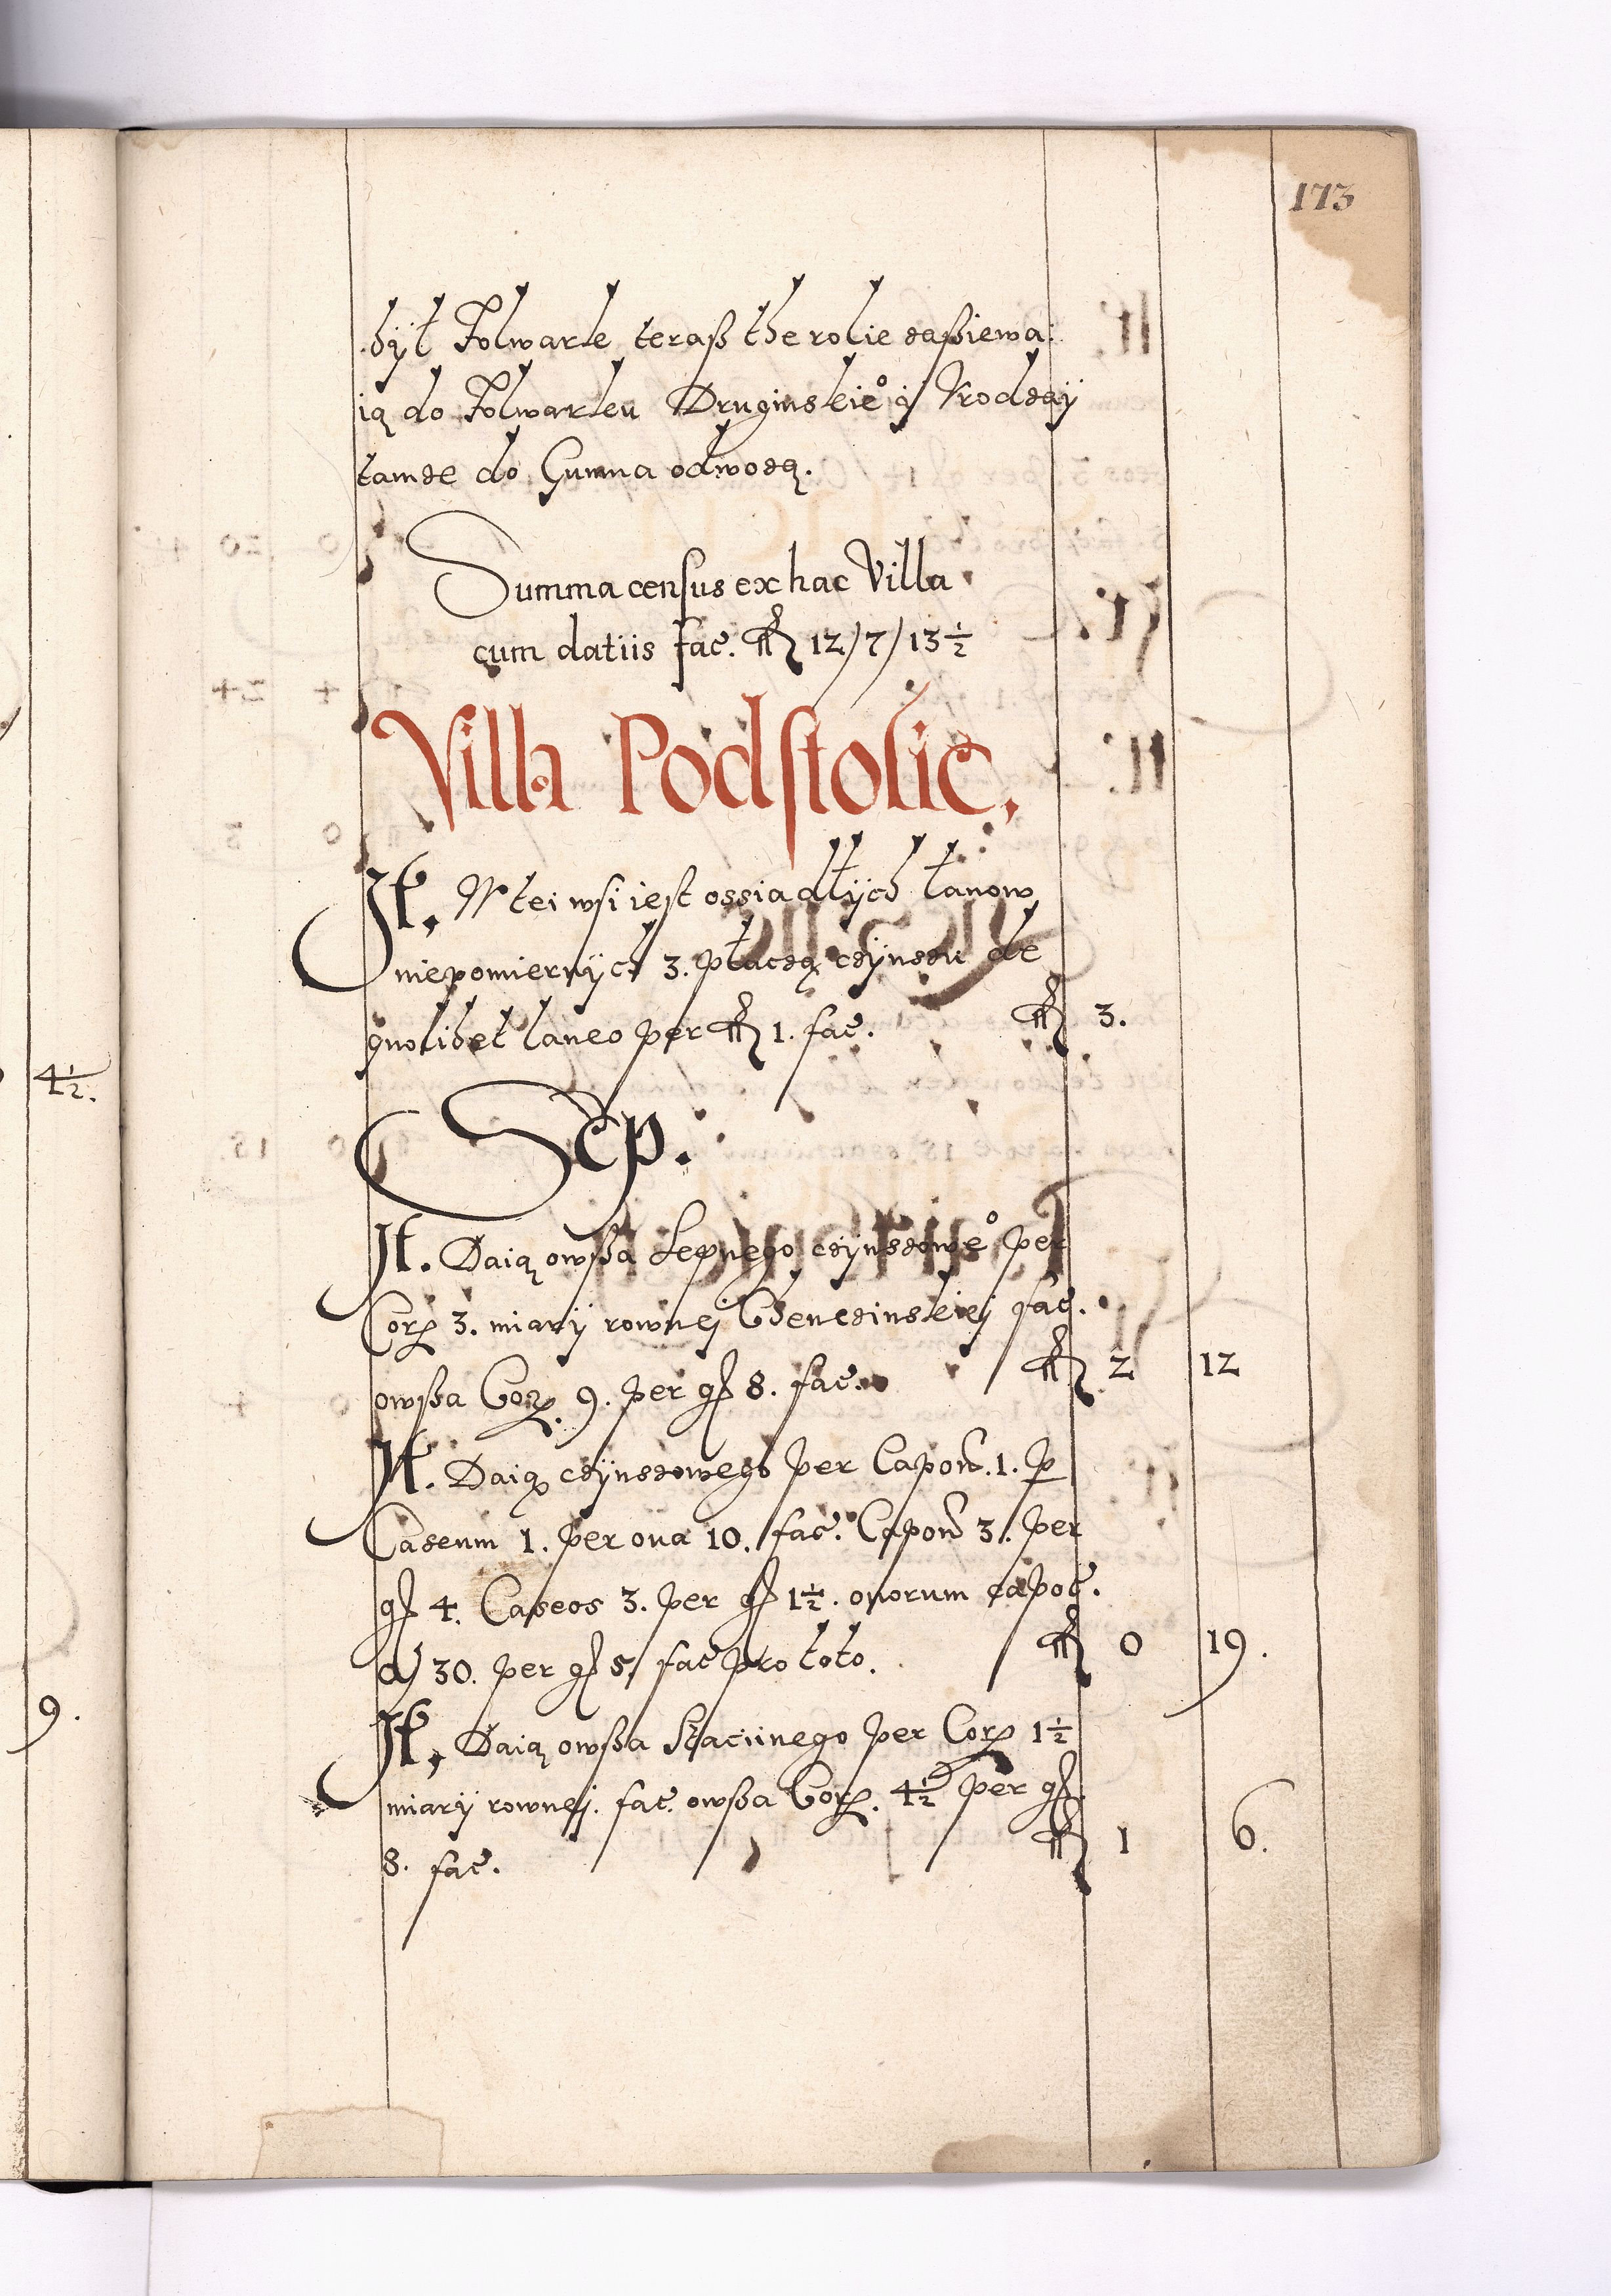 173
był Folwark teraß the rolie zaßiewa:
ią do Folwarku Druginskie° y Vrodzay
tamże do Gumna odwożą.
Summa census ex hac Villa
cum datiis fac. ꝟ 12/7/13½
Villa Podstolic.
It. W tei wsi iest ossiadłÿch łanow
niepomiernÿch 3. płaczą czÿnszu de
quolibet laneo per 1. fac. 3.
Sep.
It. Daią owßa Sepnego czÿnszowe° per
Corϼ 3. miarÿ rownej Chencinskiej fac.
owßa Corϼ. 9. per gſ 8. fac. 2 12
It. Daią czÿnszowego per Capon̄. 1. p
Caseum 1. per oua 10. fac. Capon̄ 3. per
gſ 4. Caseos 3. per gſ 1½. ouorum capoc.
a) 30. per gſ 5. fac pro toto. 0 19.
It. Daią owßa Staciinego per Corϼ 1½
miarÿ rownej. fac. owßa Corϼ. 4½ per gſ
8. fac. 1 6.
4½.
9.